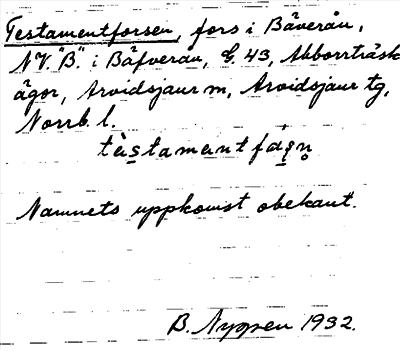 Testamentforsen, fors i Bäverån,
NV. "B." i Bäfverån, G. 43, Abborrträsk
ägor, Arvidsjaur m, Arvidsjaur tg,
Norrb. l.
tèstamentfåṣn̥
Namnets uppkomst obekant.
B. Nygren 1932.